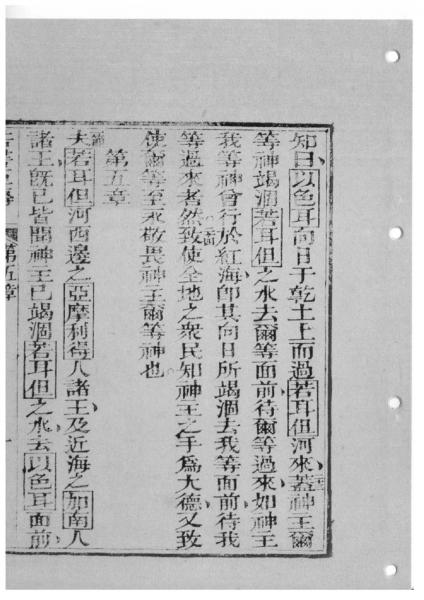 知曰以色耳向日于乾土上而過若耳但河來蓋神王爾
等神竭涸若耳但之水去爾等面前待爾等過來如神王
我等神曾行於紅海卽其向日所竭涸去我等面前待我
等過來者然致使全地之衆民知神王之手爲大德又致
使爾等至永敬畏神王爾等神也
第五章
夫若耳但河西邊之亞摩利得人諸王及近海之加南人
諸王旣已皆聞神王已竭涸若耳但之水去以色耳面前
第五章